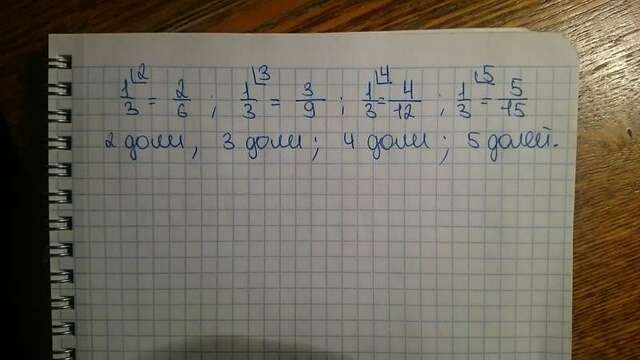 1/3 |2 = 2/6 ; 1/3 |3 = 3/9 ; 1/3 |4 = 4/12 ; 1/3 |5 = 5/15
2 доли, 3 доли; 4 доли; 5 долей.